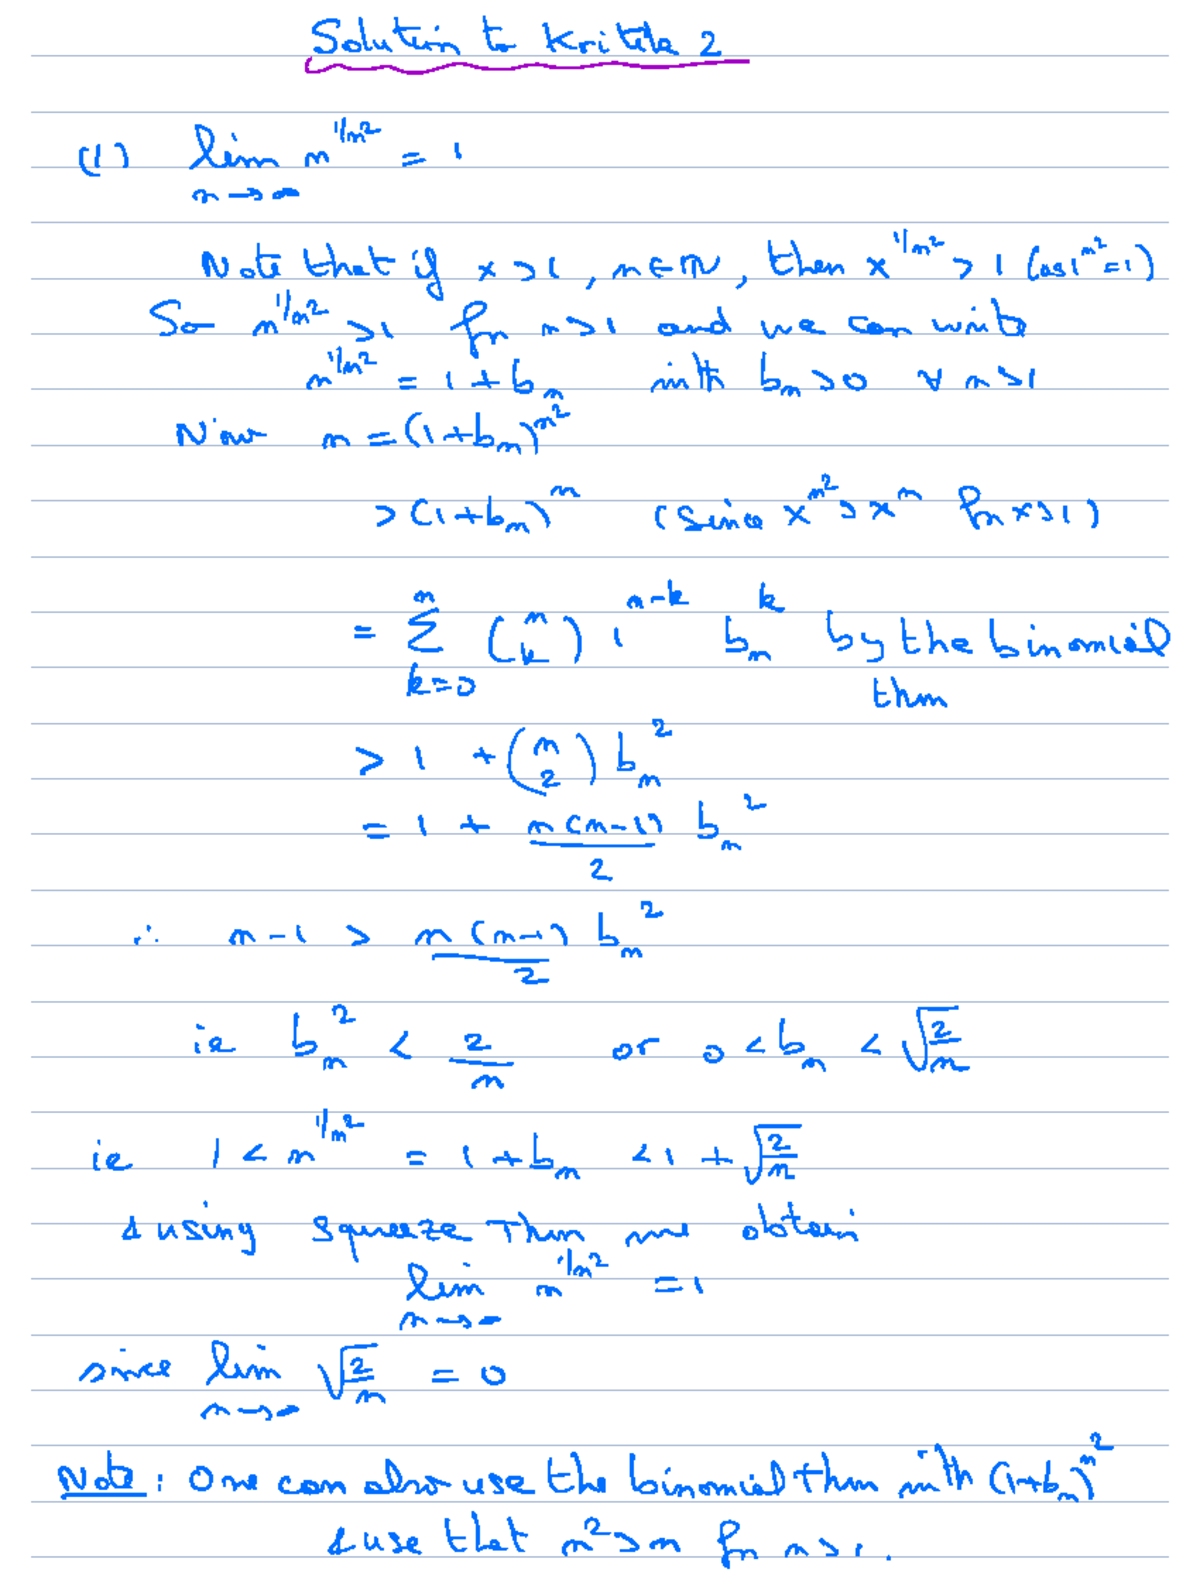 Solution to Kritik 2
(1) lim n^{1/n^2} = 1
n→∞
Note that if x > 1, n ∈ ℕ, then x^{1/n^2} > 1 (as 1^{n^2} = 1)
So n^{1/n^2} > 1 for n > 1 and we can write
n^{1/n^2} = 1 + b_n with b_n > 0 ∀ n > 1
Now n = (1 + b_n)^{n^2}
> (1 + b_n)^n (since x^{n^2} > x^n for x > 1)
= Σ_{k=0}^{n} (n k) 1^{n-k} b_n^k by the binomial
thm
> 1 + (n 2) b_n^2
= 1 + n(n-1)/2 b_n^2
∴ n - 1 > n(n-1)/2 b_n^2
ie b_n^2 < 2/n or 0 < b_n < √(2/n)
ie 1 < n^{1/n^2} = 1 + b_n < 1 + √(2/n)
& using squeeze Thm we obtain
lim n^{1/n^2} = 1
n→∞
since lim √(2/n) = 0
n→∞
Note: One can also use the binomial thm with (1+b_n)^{n^2}
& use that n^2 > n for n > 1.